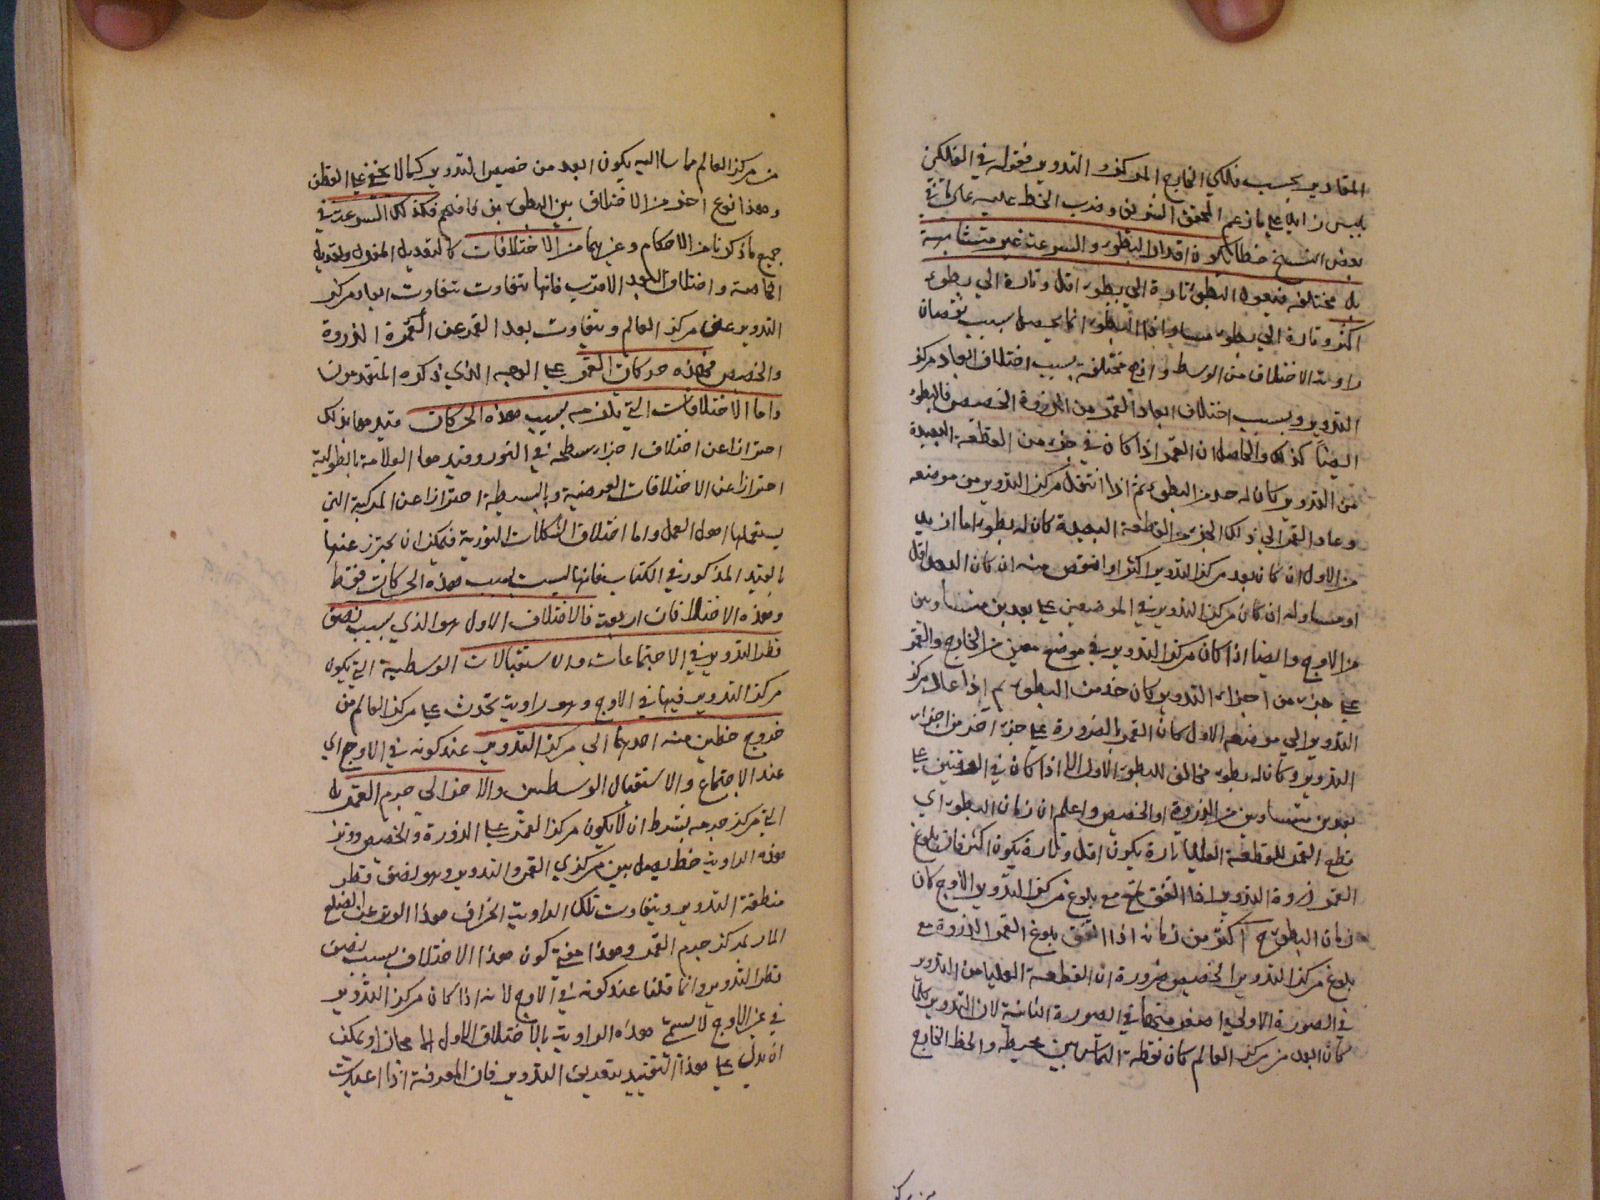 المقادير بحسب فلكي الخارج المركز والتدوير فقوله في الفلكين
ليس زايدا على ما زعم المحقق الشريف وضرب الخط عليه على ما في
بعض النسخ خطأ لكون اقدار البطوء والسرعة غير متشابهة
بل مختلفة فيعود البطوء تارة الى بطوء اقل وتارة الى بطوء
اكثر وتارة الى بطوء مساو اذ البطوء انما يحصل بسبب نقصان
زاوية الاختلاف من الوسط وانها مختلفة بسبب اختلاف ابعاد مركز
التدوير وبسبب اختلاف ابعاد القمر من الذروة والحضيض فالبطوء
ايضا كذلك والحاصل ان القمر اذا كان في جزء من القطعة البعيدة
من التدوير كان له حد من البطوء ثم اذا انتقل مركز التدوير من موضعه
وعاد القمر الى ذلك الجزء من القطعة البعيدة كان له بطوء اما ازيد
من الاول ان كان بعد مركز التدوير اكثر او انقص منه ان كان البعد اقل
او مساو له ان كان مركز التدوير في الموضعين على بعدين متساويين
من الاوج وايضا اذا كان مركز التدوير في موضع معين من الخارج والقمر
على جزء من اجزاء التدوير كان حد من البطوء ثم اذا عاد مركز
التدوير الى موضعه الاول كان القمر بالضرورة على جزء آخر من اجزاء
التدوير وكان له بطوء مخالف للبطوء الاول الا اذا كان في الوقتين على
بعدين متساويين من الذروة او الحضيض واعلم ان زمان البطوء اي
قطع القمر للقطعة العليا تارة يكون اقل وتارة يكون اكثر فان بلوغ
القمر ذروة التدوير اذا اتفق مع بلوغ مركز التدوير الاوج كان
زمان البطوء ح اكثر من زمانه اذا اتفق بلوغ القمر الذروة مع
بلوغ مركز التدوير الحضيض ضرورة ان القطعة العليا من التدوير
في الصورة الاولى اصغر منها في الصورة الثانية لان التدوير كلما
كان ابعد من مركز العالم كان نقطة التماس بين محيطه والخط الخارج
من مركز
من مركز العالم مماسا اليه يكون ابعد من حضيض التدوير كما لا يخفى على الفطن
وهذا نوع آخر من الاختلاف بين البطوء فافهم وكذلك السرعة في
جميع ما ذكرنا من الاحكام وغيرهما من الاختلافات كالتعديل المفرد وتعديل
الخاصة واختلاف البعد الاقرب فانها تتفاوت بتفاوت ابعاد مركز
التدوير عن مركز العالم وبتفاوت بعد القمر عن الذروة
والحضيض فهذه حركات القمر على الوجه الذي ذكره المتقدمون
واما الاختلافات التي يلزمه بسبب هذه الحركات قيدها بذلك
احترازا عن اختلاف اجزاء سطحه في النور وقيدها العلامة بالطولية
احترازا عن الاختلافات العرضية وبالبسيطة احترازا عن المركبة التي
يستعملها اهل العمل واما اختلاف التشكلات النورية فيمكن ان يحترز عنها
بالقيد المذكور في الكتاب فانها ليست بسبب هذه الحركات فقط
وهذه الاختلافات اربعة فالاختلاف الاول هو الذي بسبب نصف
قطر التدوير في الاجتماعات والاستقبالات الوسطية التي يكون
مركز التدوير فيها في الاوج وهو زاوية تحدث على مركز العالم من
خروج خطين منه احدهما الى مركز التدوير عند كونه في الاوج اي
عند الاجتماع والاستقبال الوسطين والآخر الى جرم القمر بل
الى مركز جرمه بشرط ان لا يكون مركز القمر على الذروة والحضيض ووتر
هذه الزاوية خط يصل بين مركزي القمر والتدوير وهو نصف قطر
منطقة التدوير ويتفاوت تلك الزاوية انحراف هذا الوتر عن الضلع
المار بمركز جرم القمر وهذا معنى كون هذا الاختلاف بسبب نصف
قطر التدوير وانما قلنا عند كونه في الاوج لانه اذا كان مركز التدوير
في غير الاوج لا يسمى هذه الزاوية بالاختلاف الاول الا مجازا ويمكن
ان يدل على هذا التقييد بتعريف التدوير فان المعرفة اذا اعيدت